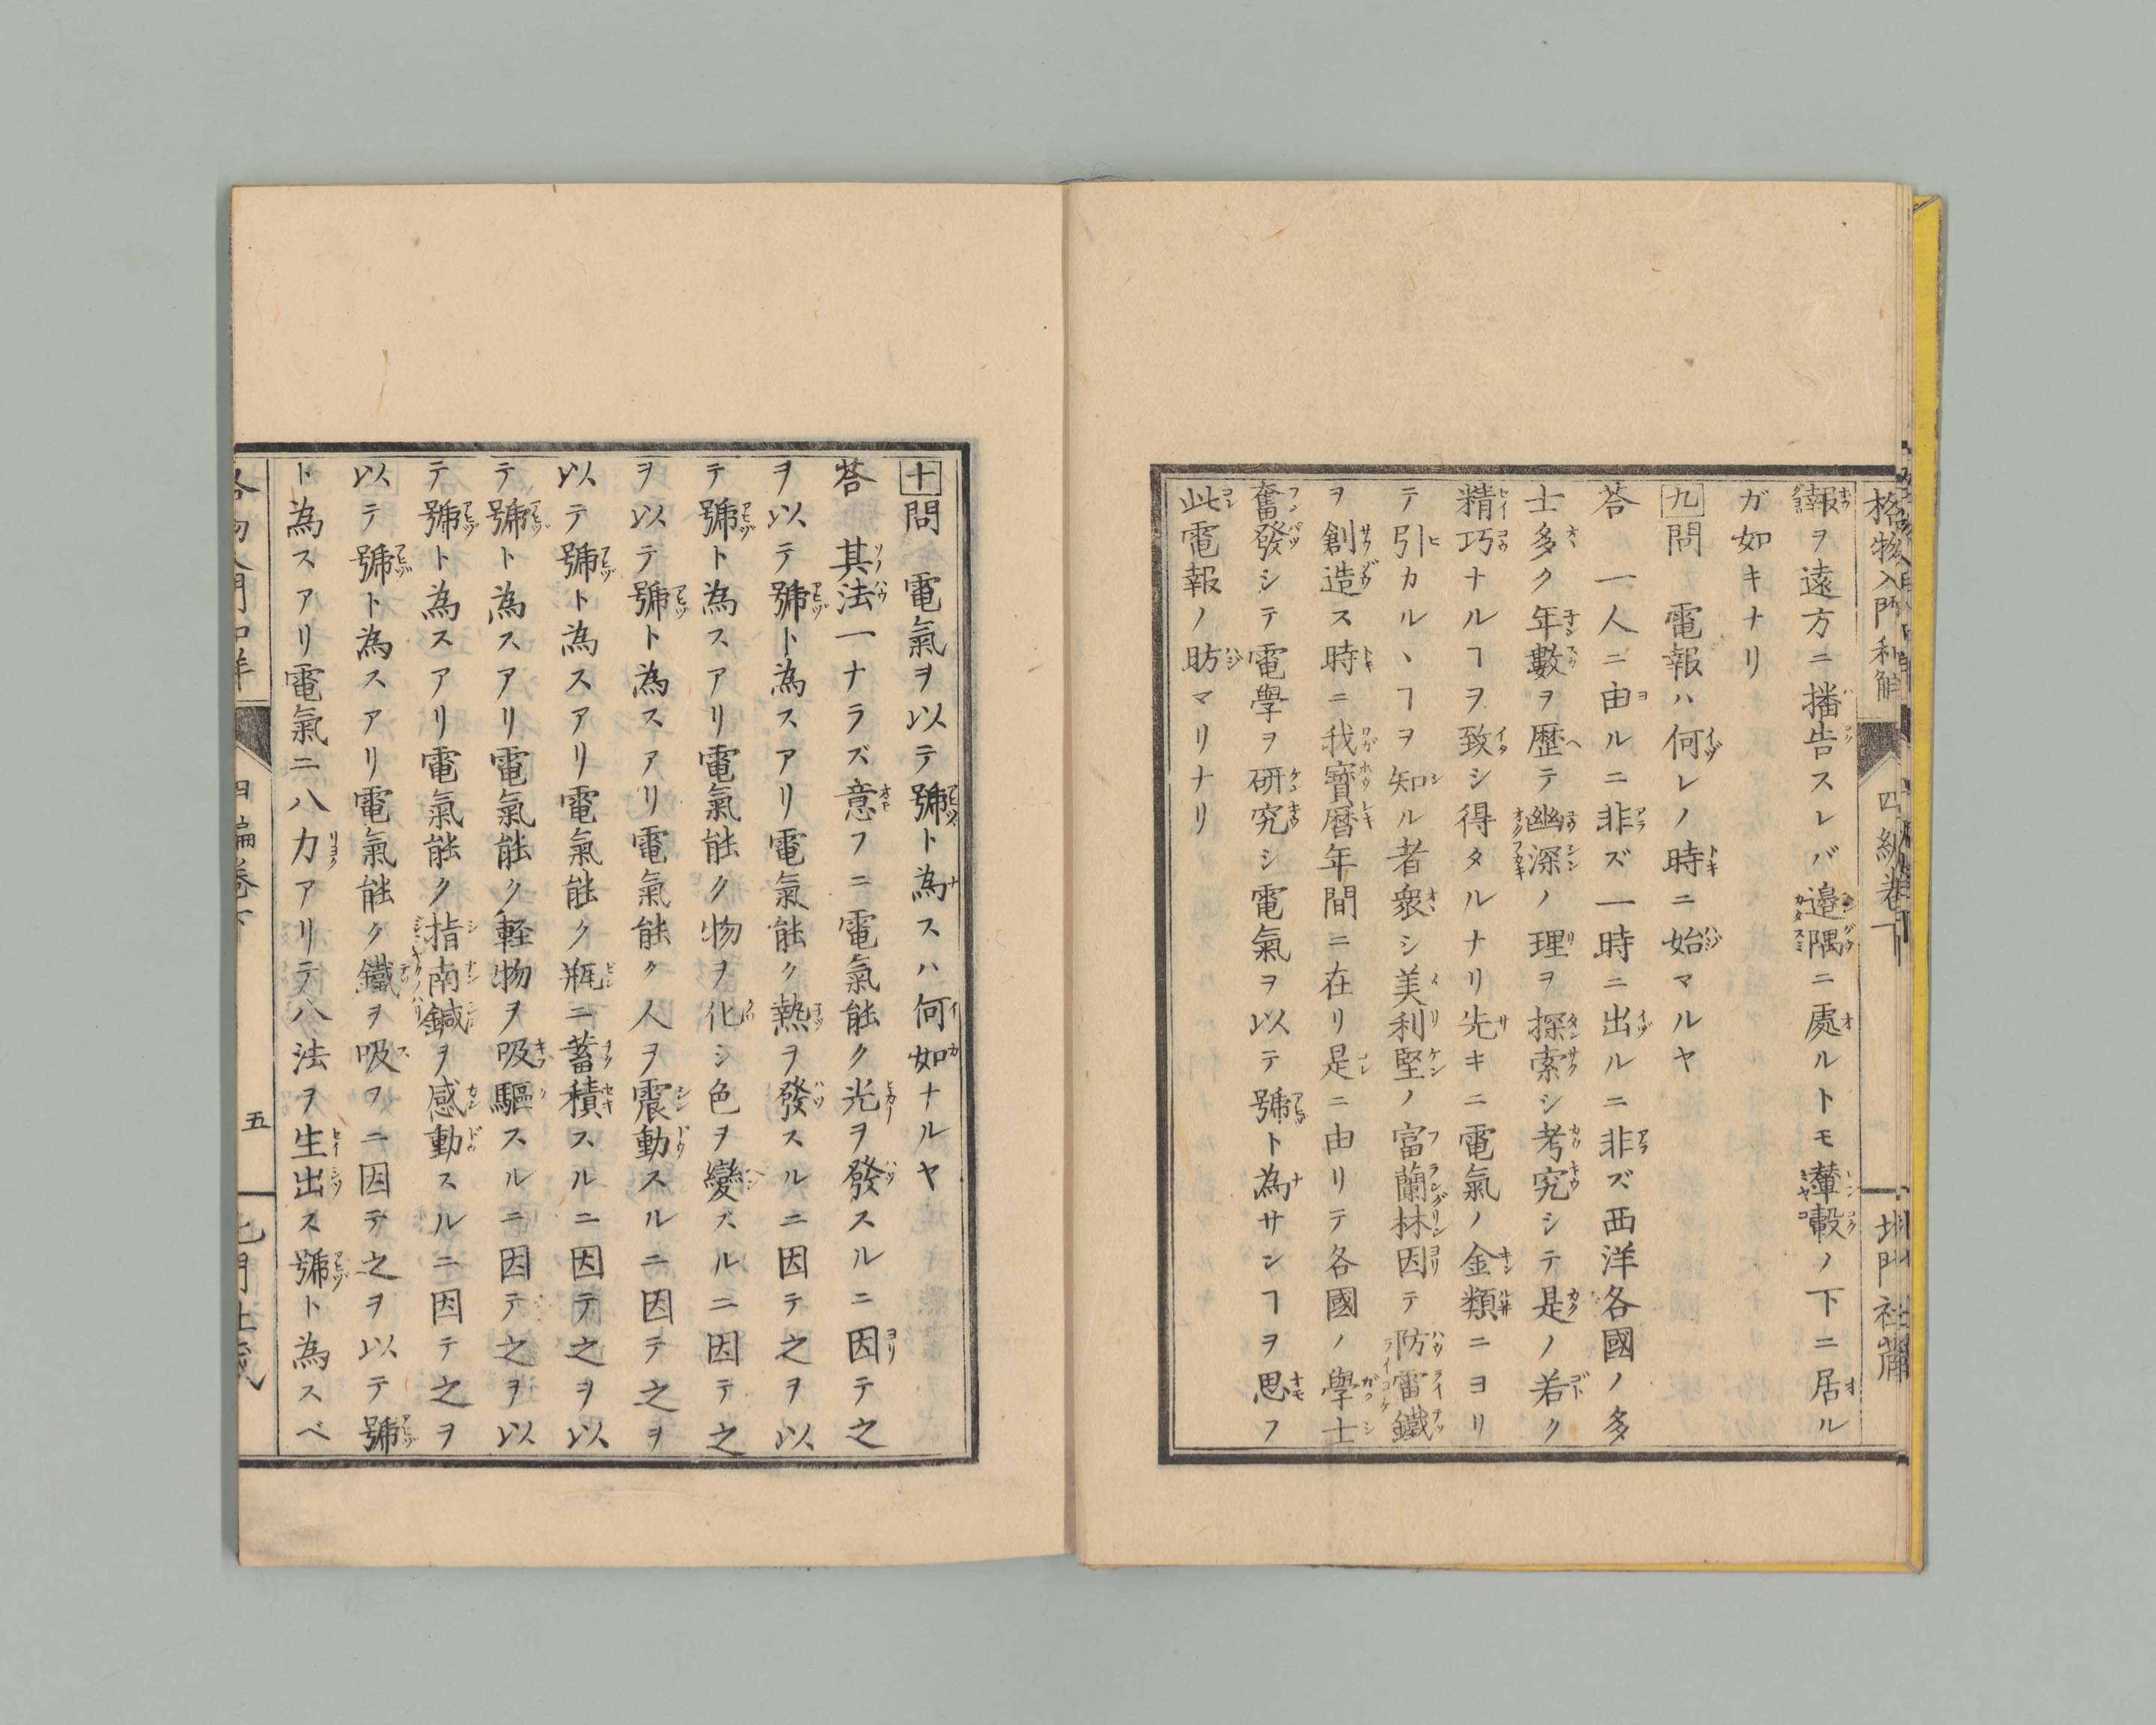 格物入門和解 四編卷下 北門社藏
報ヲ遠方ニ播告スレバ邉隅ニ處ルトモ輦轂ノ下ニ居ル
ガ如キナリ
九問 電報ハ何レノ時ニ始マルヤ
荅 一人ニ由ルニ非ズ一時ニ出ルニ非ズ西洋各國ノ多
士多ク年數ヲ歴テ幽深ノ理ヲ探索シ考究シテ是ノ若ク
精巧ナルヿヲ致シ得タルナリ先キニ電氣ノ金類ニヨリ
テ引カルヽヿヲ知ル者衆シ美利堅ノ富蘭林因テ防雷鐵
ヲ創造ス時ニ我寳暦年間ニ在リ是ニ由リテ各國ノ學士
奮發シテ電學ヲ研究シ電氣ヲ以テ號ト為サンヿヲ思フ
此電報ノ昉マリナリ
十問 電氣ヲ以テ號ト為スハ何如ナルヤ
荅 其法一ナラズ意フニ電氣能ク光ヲ發スルニ因テ之
ヲ以テ號ト為スアリ電氣能ク熱ヲ發スルニ因テ之ヲ以
テ號ト為スアリ電氣能ク物ヲ化シ色ヲ變ズルニ因テ之
ヲ以テ號ト為スアリ電氣能ク人ヲ震動スルニ因テ之ヲ
以テ號ト為スアリ電氣能ク瓶ニ蓄積スルニ因テ之ヲ以
テ號ト為スアリ電氣能ク軽物ヲ吸驅スルニ因テ之ヲ以
テ號ト為スアリ電氣能ク指南鍼ヲ感動スルニ因テ之ヲ
以テ號ト為スアリ電氣能ク鐵ヲ吸フニ因テ之ヲ以テ號
ト為スアリ電氣ニ八力アリテ八法ヲ生出ス號ト為スベ
四編卷下 五 北門社藏